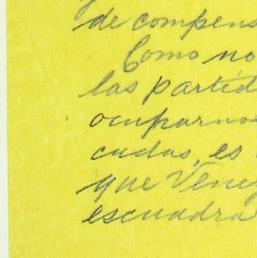 de compens
Como no
las partid
ocuparnos
cadas, es
que Vene
escuadra